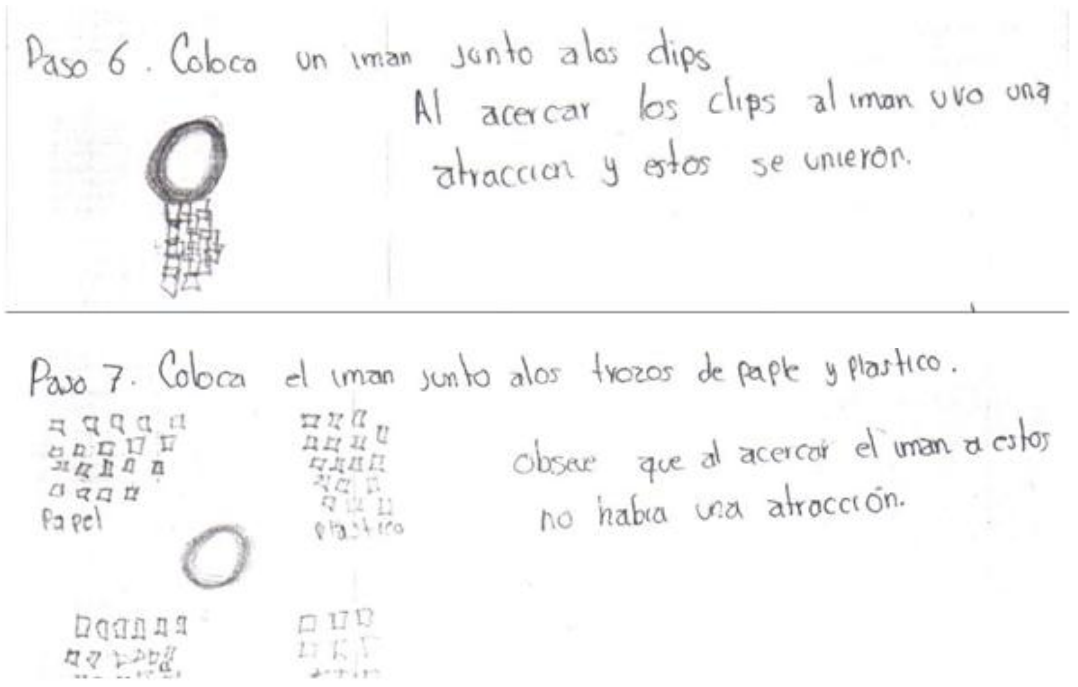 Paso 6. Coloca un iman junto alos clips
Al acercar los clips al iman uvo una
atraccion y estos se unieron.
Paso 7. Coloca el iman junto alos trozos de paple y plastico.
Papel
Plastico
obseve que al acercar el iman a estos
no habia una atracción.